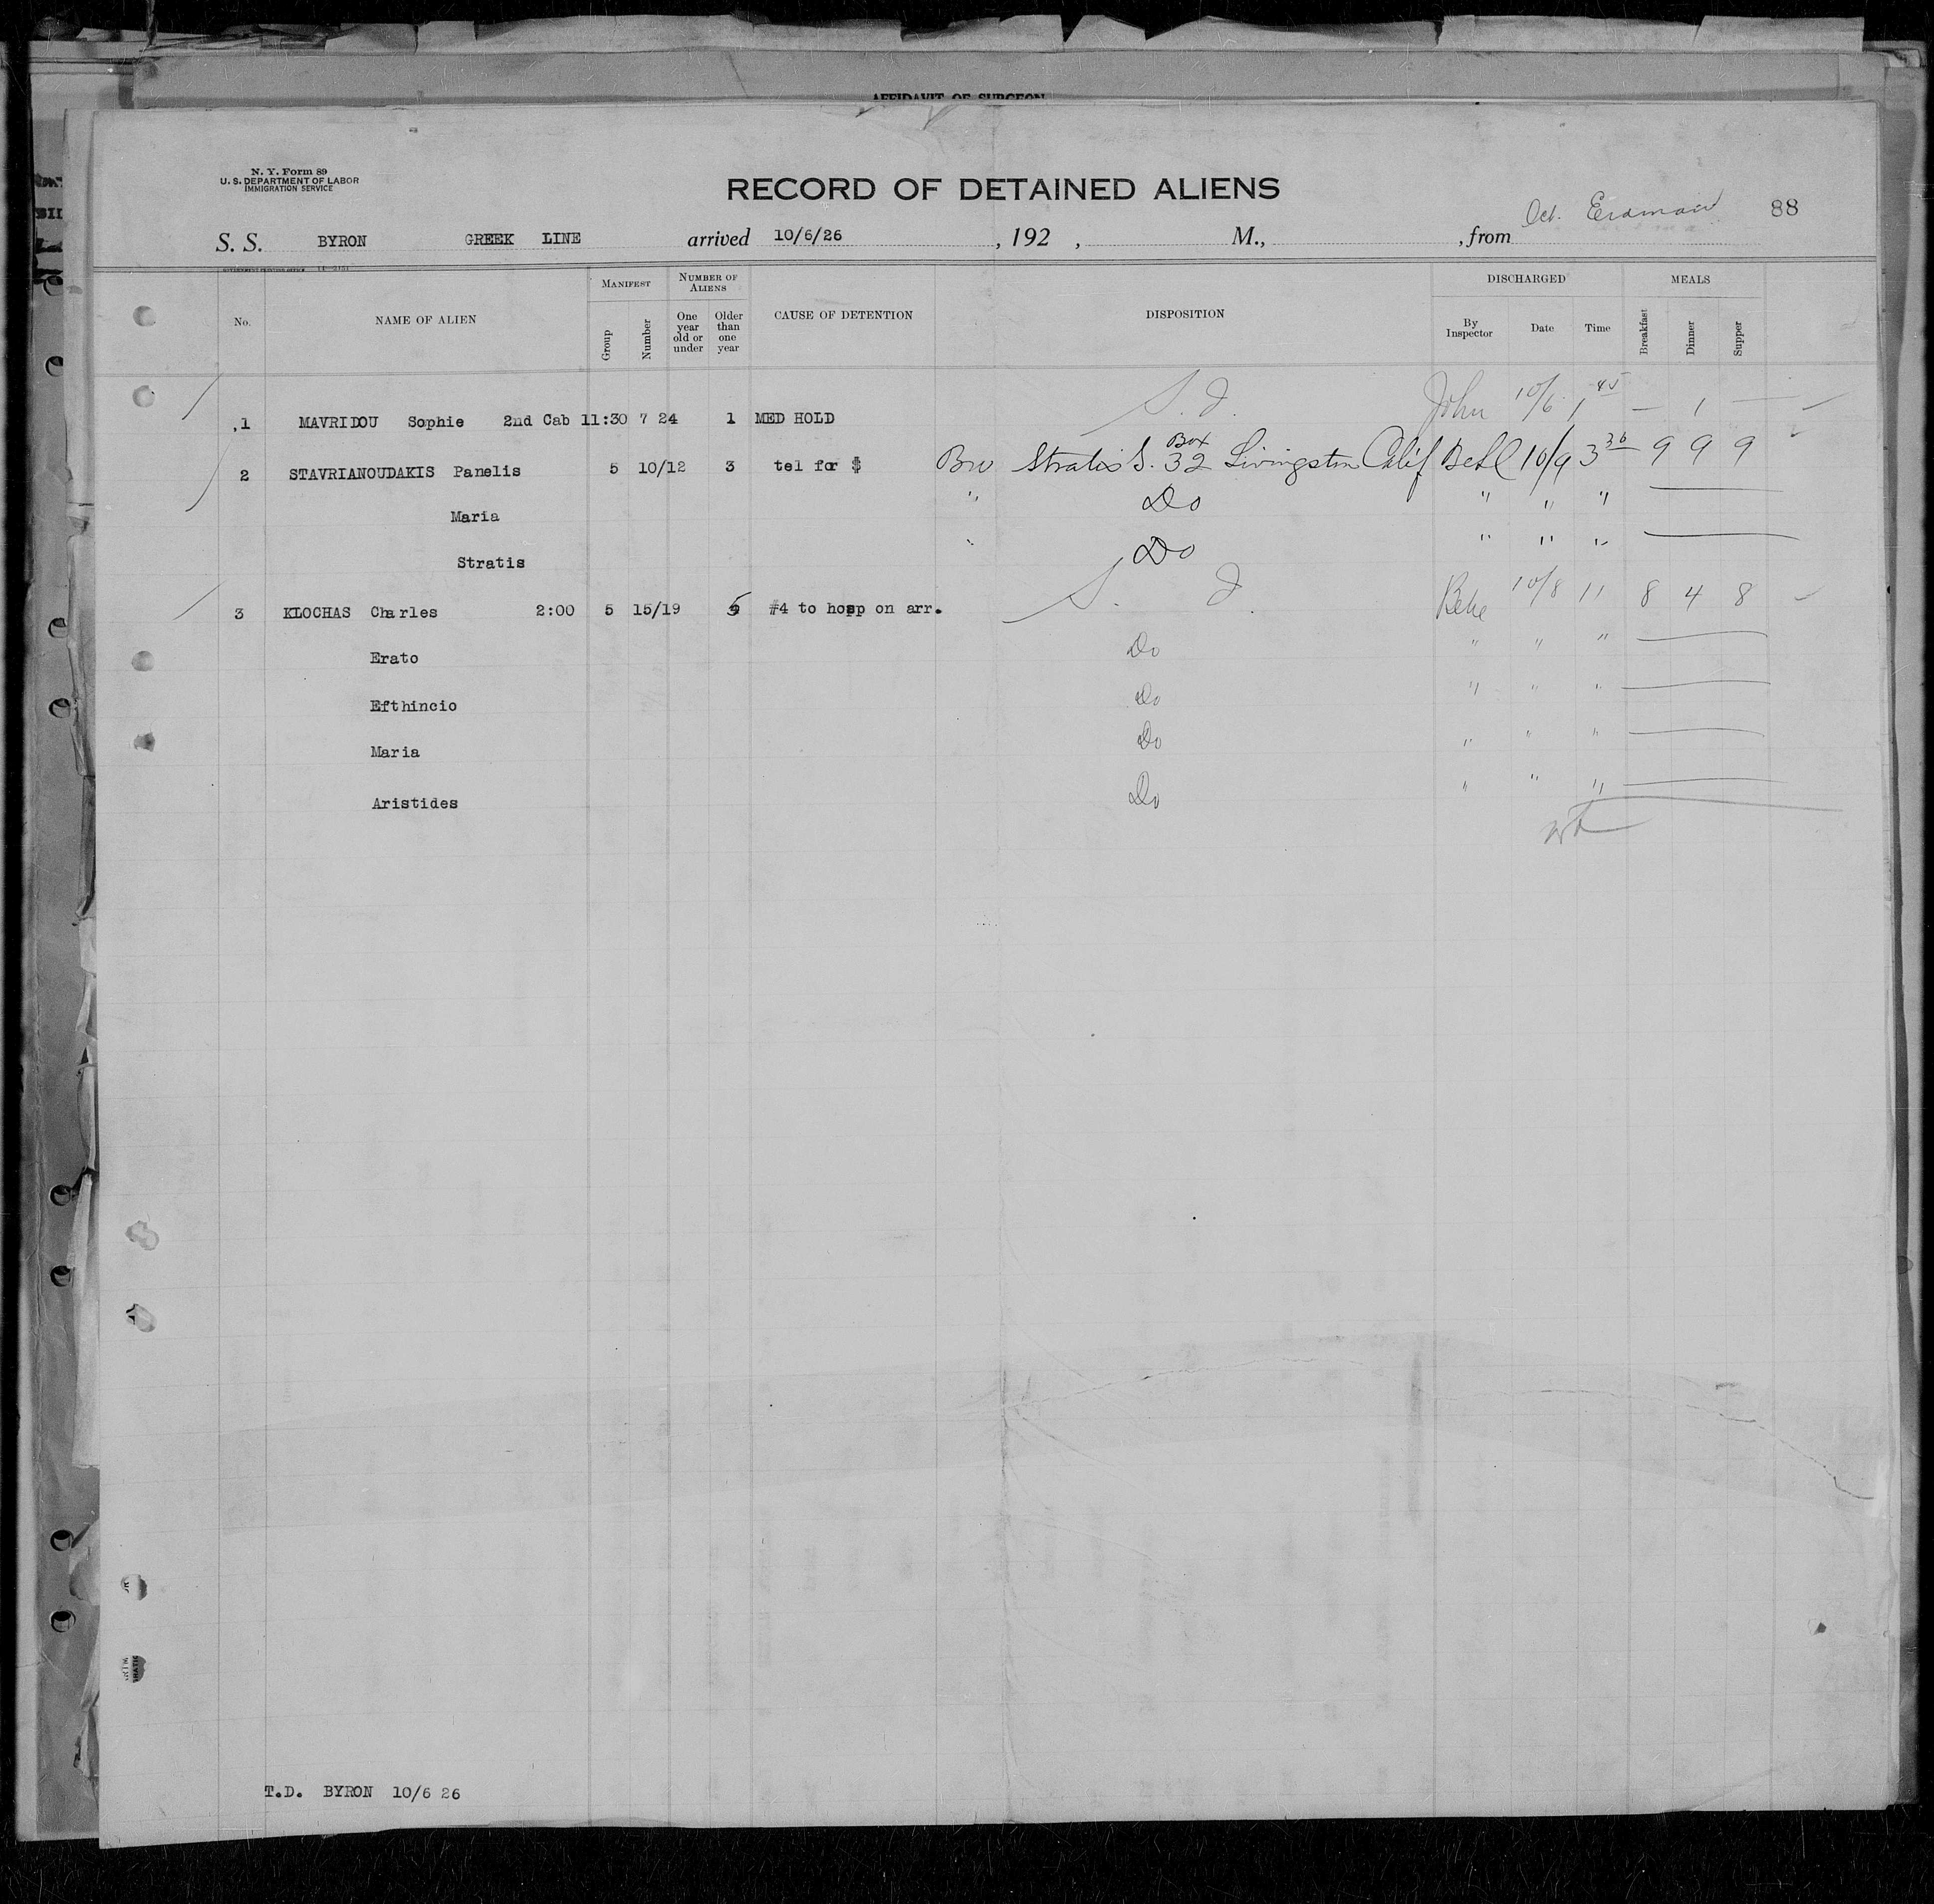 AFFIDAVIT OF SURGEON
N. Y. Form 89
U. S. DEPARTMENT OF LABOR
IMMIGRATION SERVICE
RECORD OF DETAINED ALIENS
88
S. S. BYRON GREEK LINE arrived 10/6/26 , 192 , M., , from
MANIFEST NUMBER OF ALIENS DISCHARGED MEALS
No. NAME OF ALIEN Group Number One year old or under Older than one year CAUSE OF DETENTION DISPOSITION By Inspector Date Time Breakfast Dinner Supper
1 MAVRIDOU Sophie 2nd Cab 11:30 7 24 1 MED HOLD John 10/6 1 45 — 1 —
2 STAVRIANOUDAKIS Panelis 5 10/12 3 tel for $ Bro Stratis S. Box 32 Livingston Calif 10/9 3 30 9 9 9
Maria " Do " " "
Stratis " Do " " "
3 KLOCHAS Charles 2:00 5 15/19 5 #4 to hosp on arr. 10/8 11 8 4 8
Erato Do " " "
Efthincio Do " " "
Maria Do " " "
Aristides Do " " "
T.D. BYRON 10/6 26